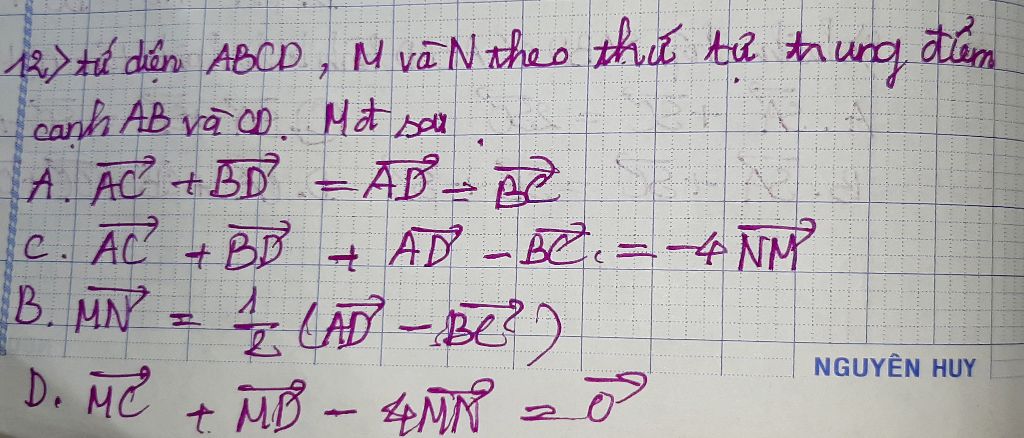 12) tứ diện ABCD, M và N theo thứ tự trung điểm
cạnh AB và CD. Mđ sau
A. \overrightarrow{AC} + \overrightarrow{BD} = \overrightarrow{AD} - \overrightarrow{BC}
C. \overrightarrow{AC} + \overrightarrow{BD} + \overrightarrow{AD} - \overrightarrow{BC} = -4\overrightarrow{NM}
B. \overrightarrow{MN} = \frac{1}{2} (\overrightarrow{AD} - \overrightarrow{BC})
NGUYÊN HUY
D. \overrightarrow{MC} + \overrightarrow{MD} - 4\overrightarrow{MN} = \overrightarrow{0}